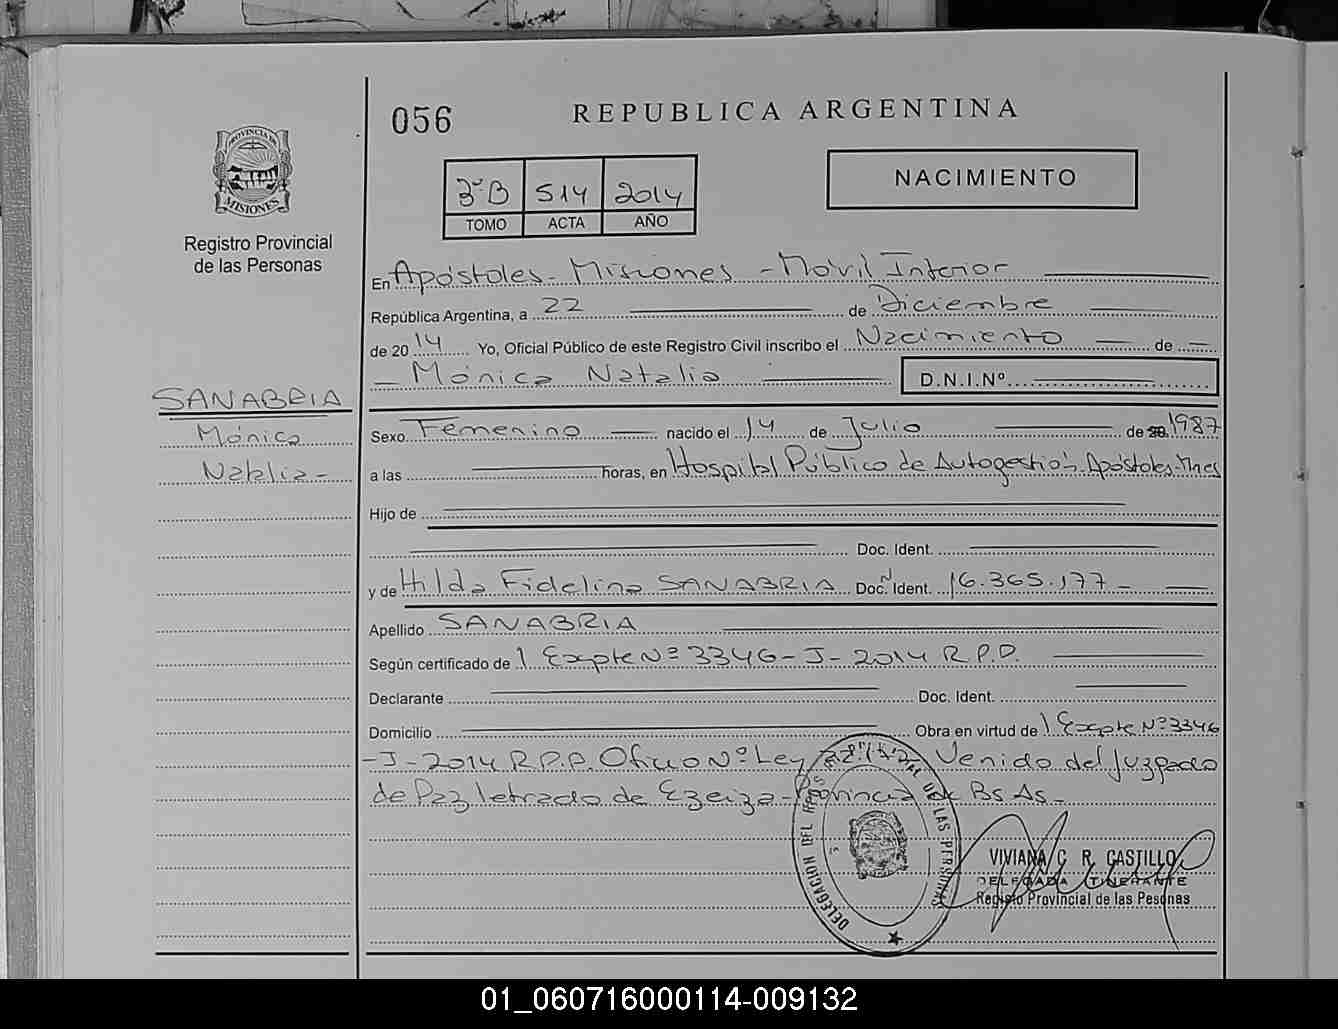 056
REPUBLICA ARGENTINA
PROVINCIA DE
MISIONES
Registro Provincial
de las Personas
3º B 514 2014
TOMO ACTA AÑO
NACIMIENTO
En Apóstoles - Misiones - Móvil Interior
República Argentina, a 22 de Diciembre
de 2014 Yo, Oficial Público de este Registro Civil inscribo el Nacimiento de
Mónica Natalia D.N.I.Nº
SANABRIA
Mónica
Natalia-
Sexo Femenino nacido el 14 de Julio de 1987
a las horas, en Hospital Público de Autogestión Apóstoles-Mnes
Hijo de
Doc. Ident.
y de Hilda Fidelina SANABRIA Doc. Ident. 16.365.177-
Apellido SANABRIA
Según certificado de 1 Expte Nº 3346-J-2014 R.P.P.
Declarante Doc. Ident.
Domicilio Obra en virtud de 1 Expte Nº 3346
-J-2014 R.P.P. Oficio Nº Ley Venido del Juzgado
de Paz letrado de Ezeiza-Provincia de Bs As-
DELEGACION DEL DE LAS PERSONAS
VIVIANA C. R. CASTILLO
DELEGADA ITINERANTE
Registo Provincial de las Pesonas
01_060716000114-009132